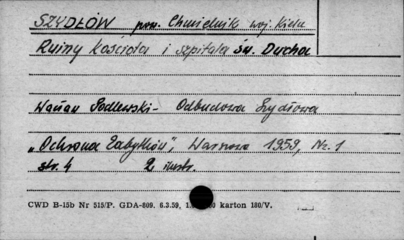 SZYDŁÓW pow. Chmielnik woj. Kielc
Ruiny kościoła i szpitala św. Ducha
Wacław Podlewski - Odbudowa Szydłowa
"Ochrona Zabytków", Warszawa 1959, Nr. 1
str. 4 2 ilustr.
CWD B-15b Nr 515/P. GDA-809. 6.3.59, karton 180/V.